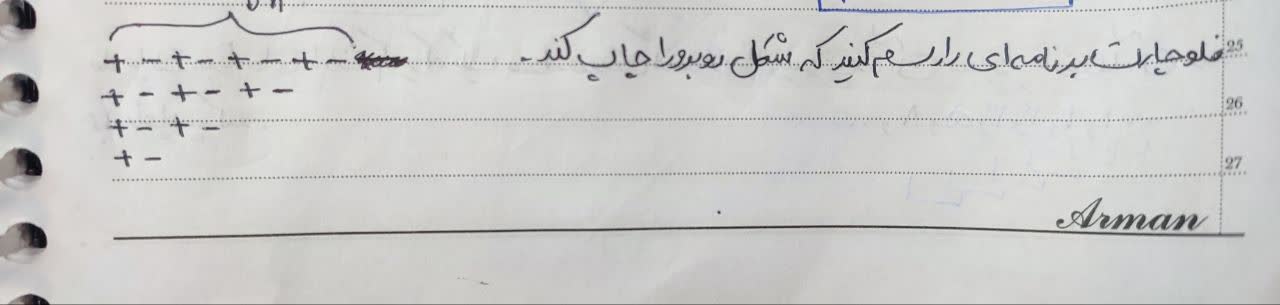 فلوچارت برنامه‌ای را رسم کنید که شکل روبرو را چاپ کند.
25
+ - + - + - + -
+ - + - + -
26
+ - + -
+ -
27
Arman